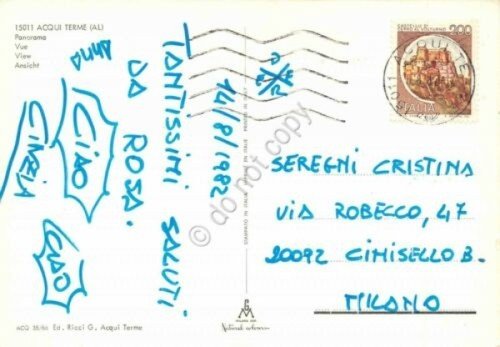 15011 ACQUI TERME (AL)
Panorama
Vue
View
Ansicht
14/8/1982
TANTISSIMI SALUTI
DA ROSA.
Anna
CIAO
CINZIA
CIAO
ACQ 38/66 Ed. Ricci G. Acqui Terme
STAMPATO IN ITALIA
PRINTED IN ITALY
do not copy
200
ITALIA
15011 ACQUI TERME
SEREGNI CRISTINA
VIA ROBECCO, 47
20092 CINISELLO B.
MILANO